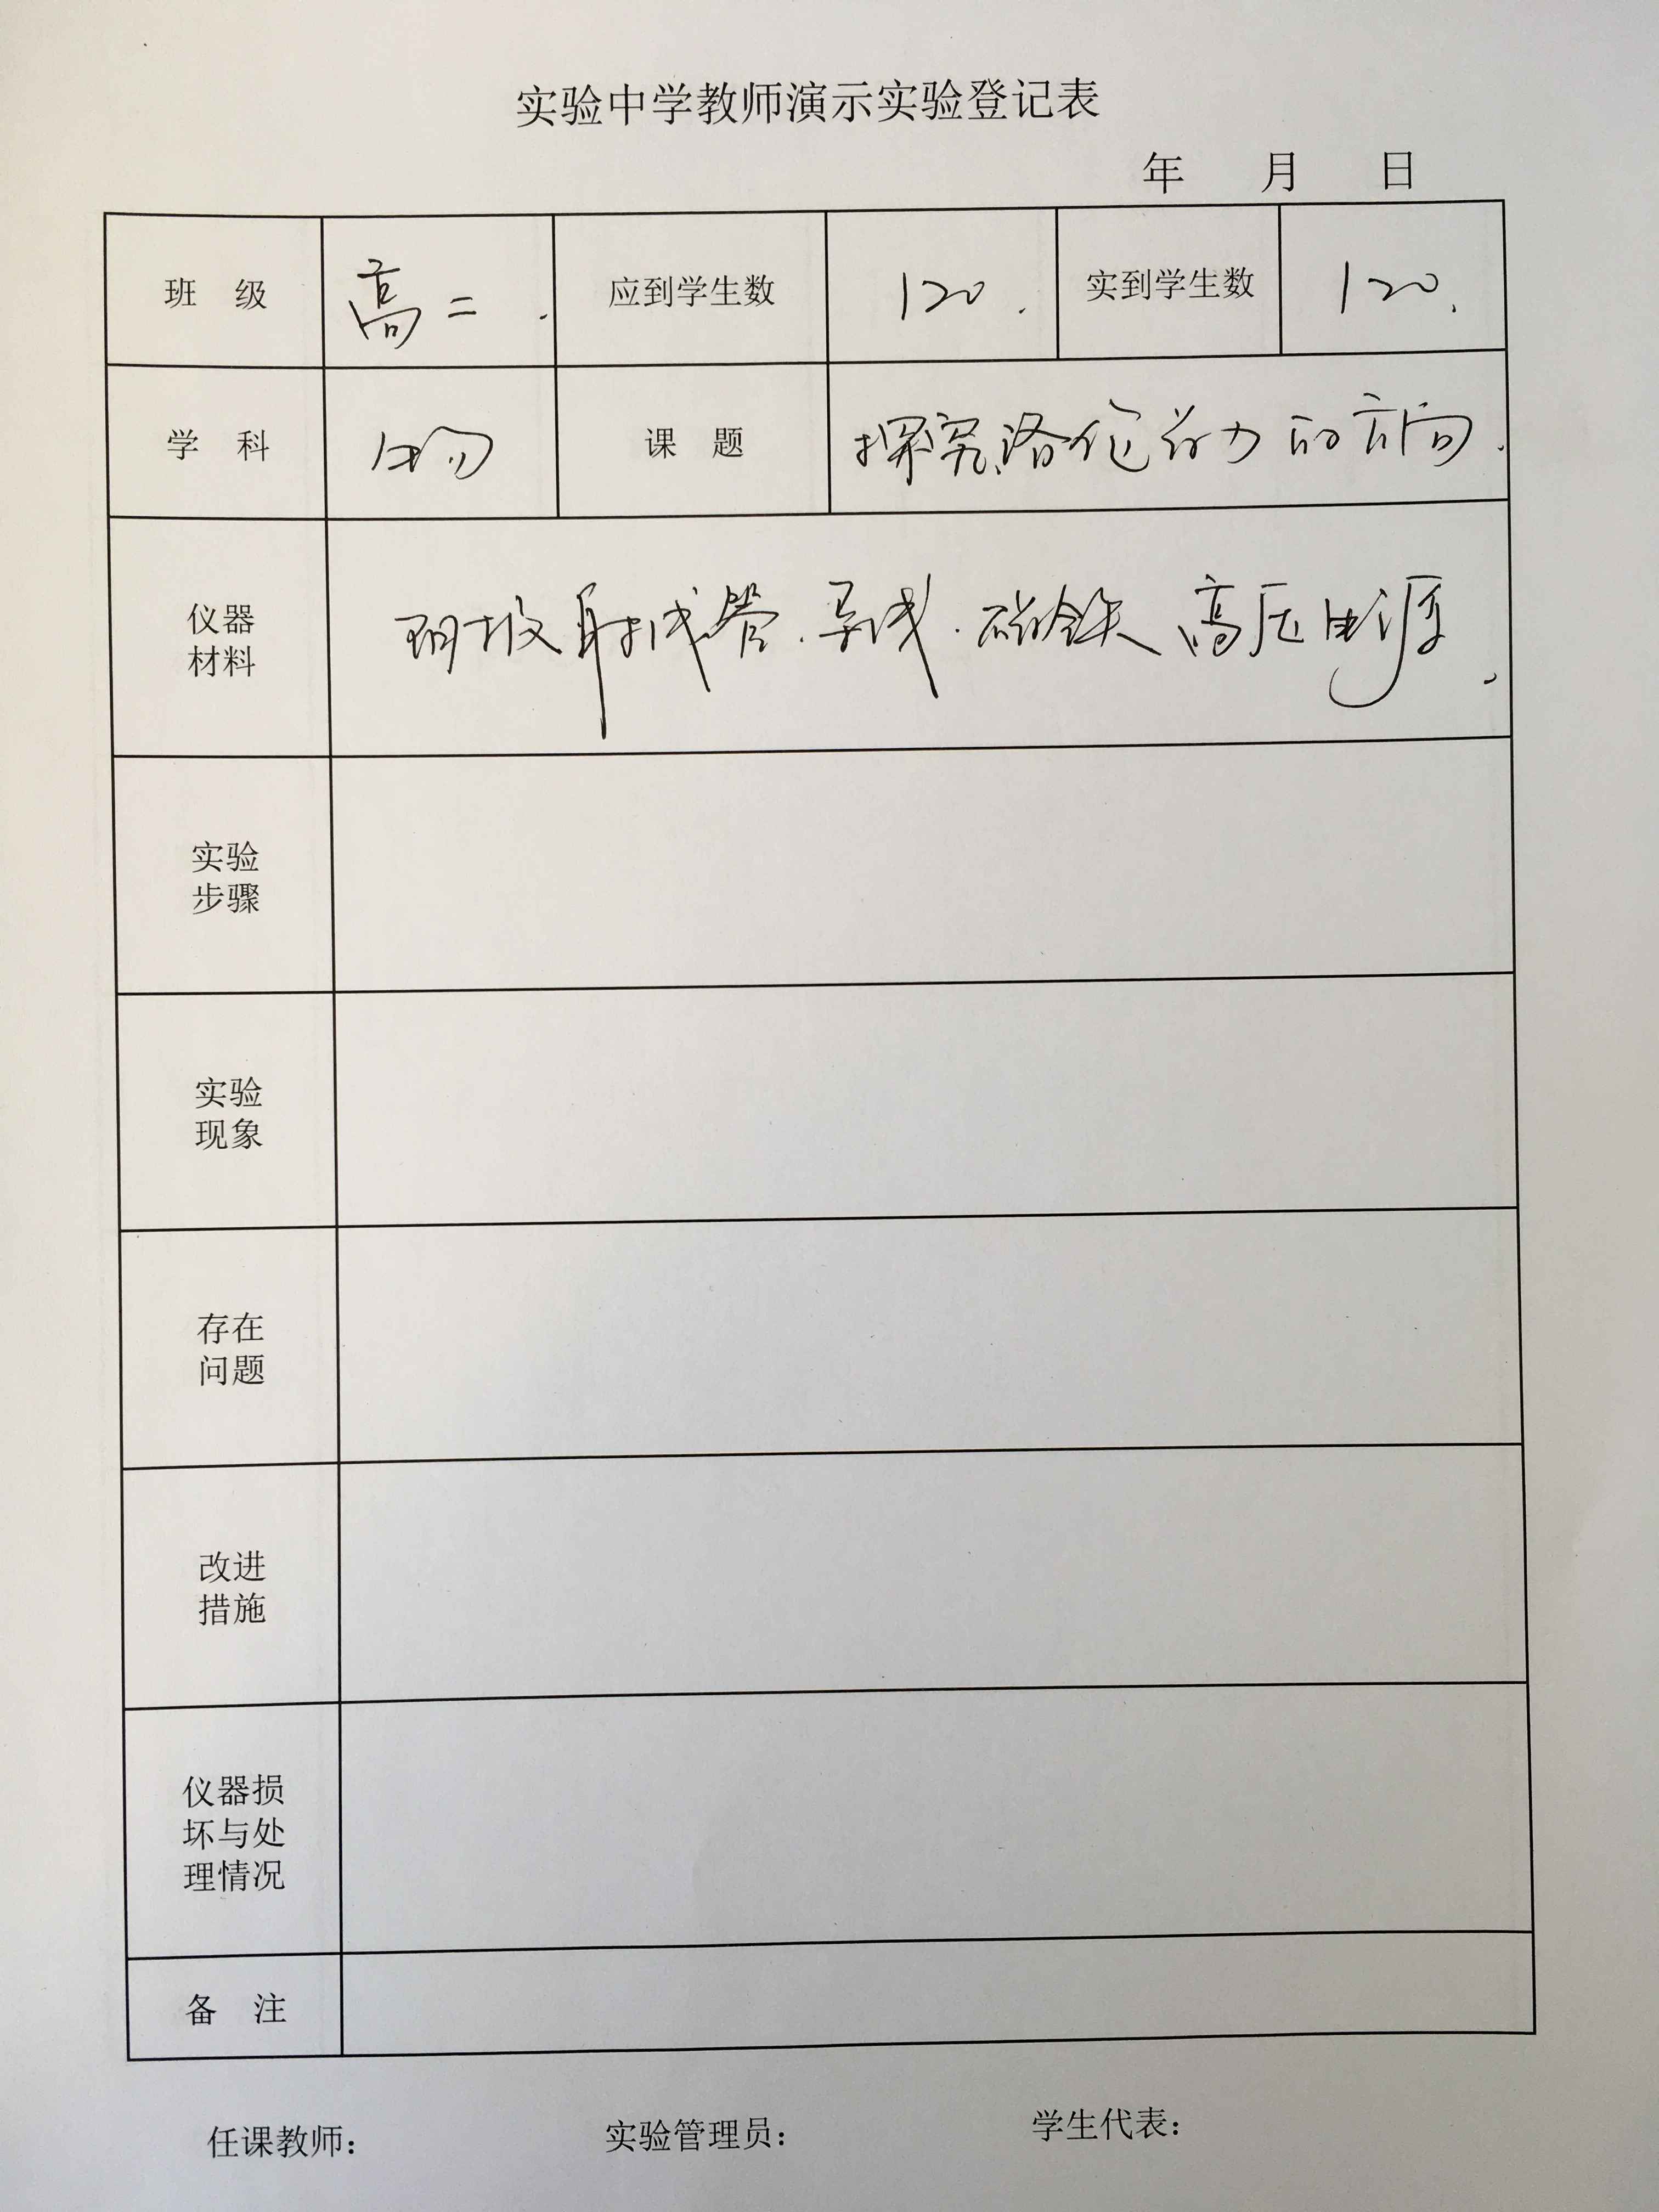 实验中学教师演示实验登记表
年 月 日
班 级 高二. 应到学生数 120. 实到学生数 120.
学 科 物 课 题 探究洛伦兹力的方向.
仪器
材料
阴极射线管.导线.磁铁 高压电源.
实验
步骤
实验
现象
存在
问题
改进
措施
仪器损
坏与处
理情况
备 注
任课教师: 实验管理员: 学生代表: